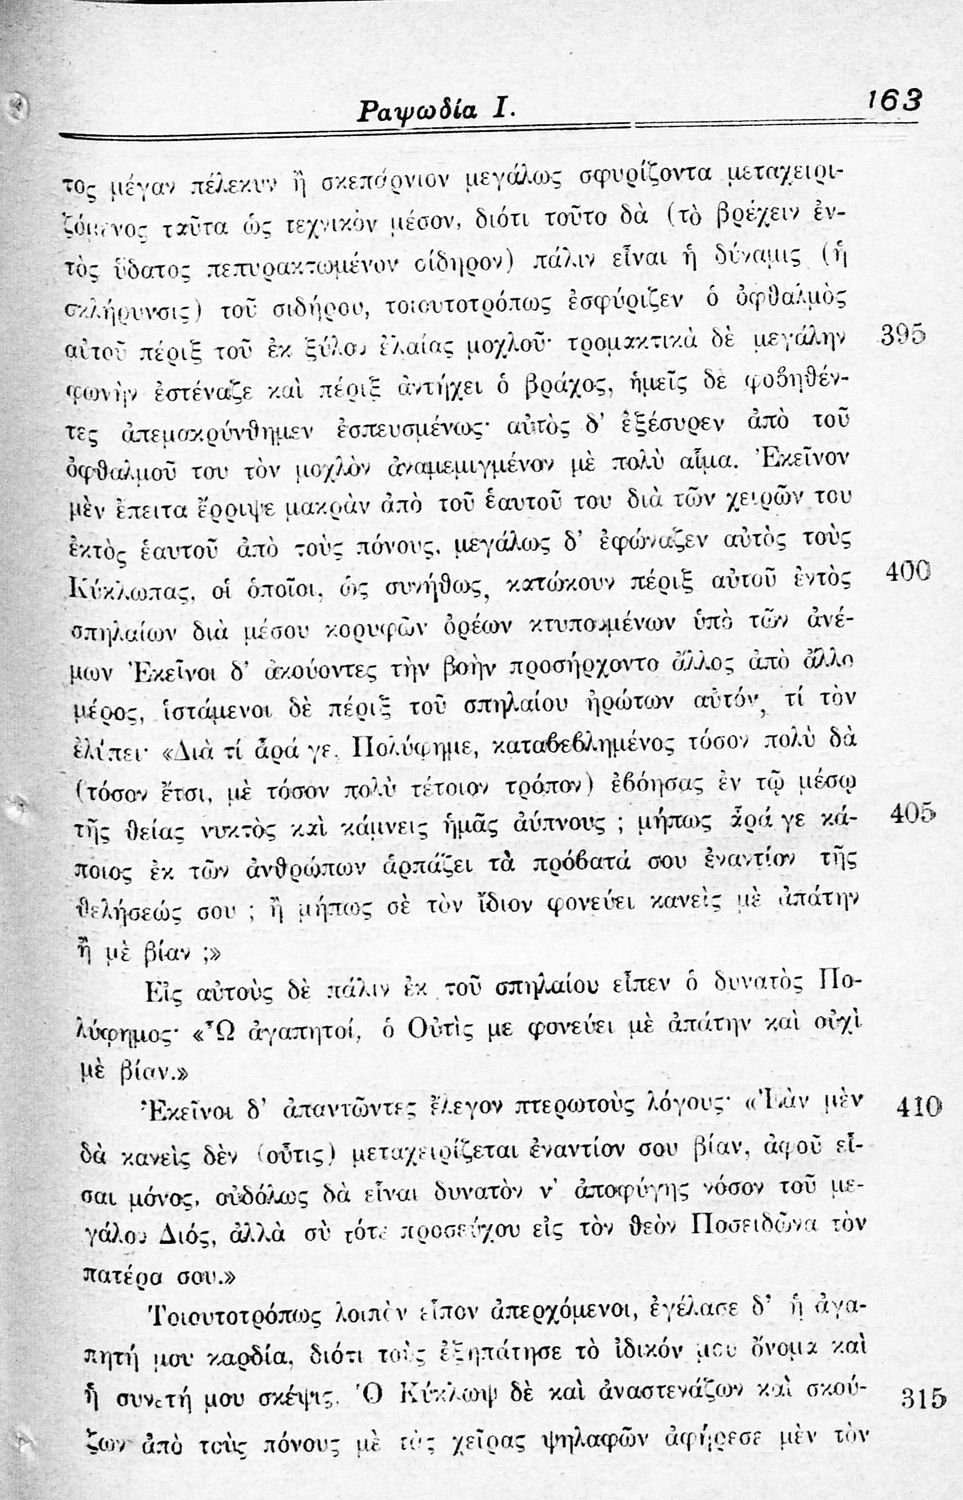 Ραψωδία Ι. 163
τος μέγαν πέλεκυν ἢ σκεπάρνιον μεγάλως σφυρίζοντα μεταχειρι-
ζόμενος ταῦτα ὡς τεχνικὸν μέσον, διότι τοῦτο δὰ (τὸ βρέχειν ἐν-
τὸς ὕδατος πεπυρακτωμένον σίδηρον) πάλιν εἶναι ἡ δύναμις (ἡ
σκλήρυνσις) τοῦ σιδήρου, τοιουτοτρόπως ἐσφύριζεν ὁ ὀφθαλμὸς
αὐτοῦ πέριξ τοῦ ἐκ ξύλου ἐλαίας μοχλοῦ· τρομακτικὰ δὲ μεγάλην 395
φωνὴν ἐστέναζε καὶ πέριξ ἀντήχει ὁ βράχος, ἡμεῖς δὲ φοβηθέν-
τες ἀπεμακρύνθημεν ἐσπευσμένως· αὐτὸς δ' ἐξέσυρεν ἀπὸ τοῦ
ὀφθαλμοῦ του τὸν μοχλὸν ἀναμεμιγμένον μὲ πολὺ αἷμα. Ἐκεῖνον
μὲν ἔπειτα ἔρριψε μακρὰν ἀπὸ τοῦ ἑαυτοῦ του διὰ τῶν χειρῶν του
ἐκτὸς ἑαυτοῦ ἀπὸ τοὺς πόνους, μεγάλως δ' ἐφώναζεν αὐτὸς τοὺς
Κύκλωπας, οἱ ὁποῖοι, ὡς συνήθως, κατώκουν πέριξ αὐτοῦ ἐντὸς 400
σπηλαίων διὰ μέσου κορυφῶν ὀρέων κτυπουμένων ὑπὸ τῶν ἀνέ-
μων Ἐκεῖνοι δ' ἀκούοντες τὴν βοὴν προσήρχοντο ἄλλος ἀπὸ ἄλλο
μέρος, ἱστάμενοι δὲ πέριξ τοῦ σπηλαίου ἠρώτων αὐτόν, τί τὸν
ἐλύπει· «Διὰ τί ἆρά γε, Πολύφημε, καταβεβλημένος τόσον πολὺ δὰ
(τόσον ἔτσι, μὲ τόσον πολὺ τέτοιον τρόπον) ἐβόησας ἐν τῷ μέσῳ
τῆς θείας νυκτὸς καὶ κάμνεις ἡμᾶς ἀύπνους ; μήπως ἆρά γε κά- 405
ποιος ἐκ τῶν ἀνθρώπων ἁρπάζει τὰ πρόβατά σου ἐναντίον τῆς
θελήσεώς σου ; ἢ μήπως σὲ τὸν ἴδιον φονεύει κανεὶς μὲ ἀπάτην
ἢ μὲ βίαν ;»
Εἰς αὐτοὺς δὲ πάλιν ἐκ τοῦ σπηλαίου εἶπεν ὁ δυνατὸς Πο-
λύφημος· «Ὦ ἀγαπητοί, ὁ Οὐτὶς με φονεύει μὲ ἀπάτην καὶ οὐχὶ
μὲ βίαν.»
Ἐκεῖνοι δ' ἀπαντῶντες ἔλεγον πτερωτοὺς λόγους· «Ἐὰν μὲν 410
δὰ κανεὶς δὲν (οὔτις) μεταχειρίζεται ἐναντίον σου βίαν, ἀφοῦ εἶ-
σαι μόνος, οὐδόλως δὰ εἶναι δυνατὸν ν' ἀποφύγῃς νόσον τοῦ με-
γάλου Διός, ἀλλὰ σὺ τότε προσεύχου εἰς τὸν θεὸν Ποσειδῶνα τὸν
πατέρα σου.»
Τοιουτοτρόπως λοιπὸν εἶπον ἀπερχόμενοι, ἐγέλασε δ' ἡ ἀγα-
πητή μου καρδία, διότι τοὺς ἐξηπάτησε τὸ ἰδικόν μου ὄνομα καὶ
ἡ συνετή μου σκέψις. Ὁ Κύκλωψ δὲ καὶ ἀναστενάζων καὶ σκού- 315
ζων ἀπὸ τοὺς πόνους μὲ τὰς χεῖρας ψηλαφῶν ἀφῄρεσε μὲν τὸν